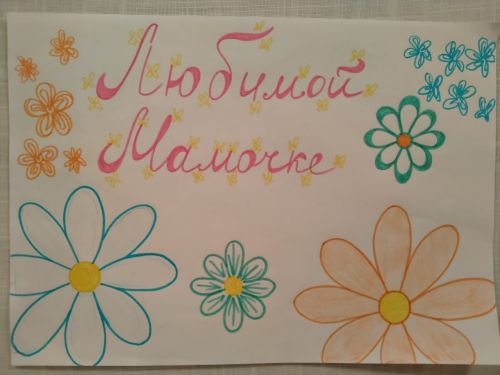 Любимой
Мамочке